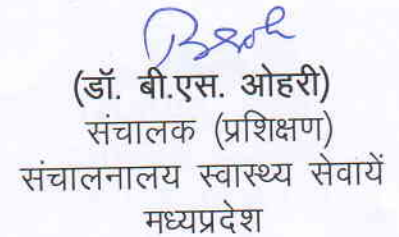 (डॉ. बी.एस. ओहरी)
संचालक (प्रशिक्षण)
संचालनालय स्वास्थ्य सेवायें
मध्यप्रदेश